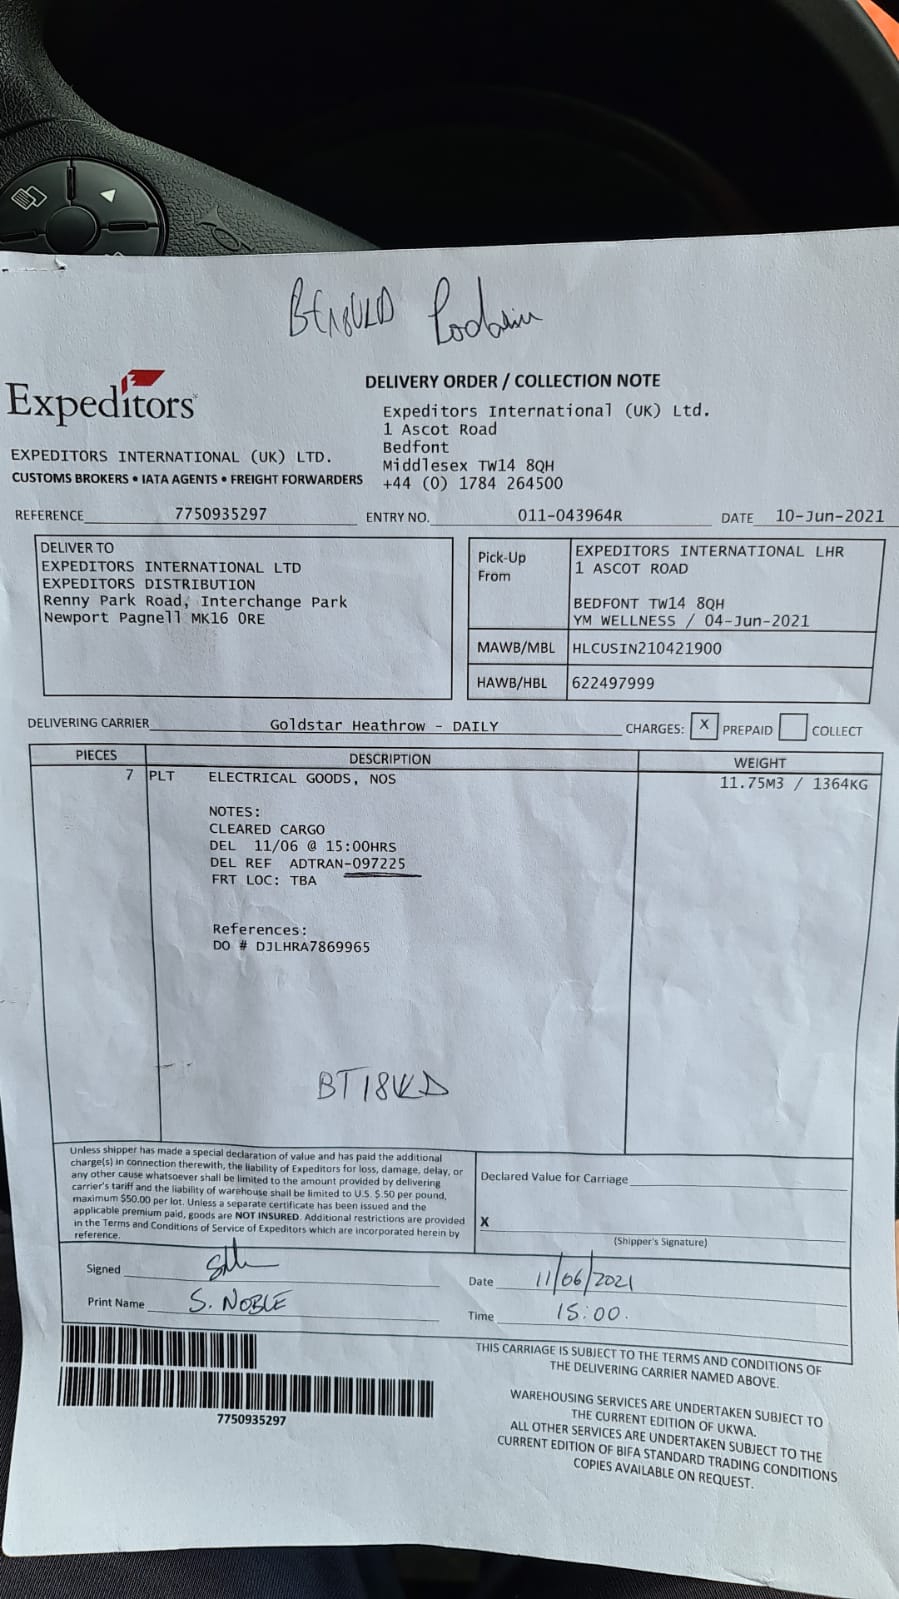 Expeditors
EXPEDITORS INTERNATIONAL (UK) LTD.
CUSTOMS BROKERS • IATA AGENTS • FREIGHT FORWARDERS
DELIVERY ORDER / COLLECTION NOTE
Expeditors International (UK) Ltd.
1 Ascot Road
Bedfont
Middlesex TW14 8QH
+44 (0) 1784 264500
REFERENCE 7750935297 ENTRY NO. 011-043964R DATE 10-Jun-2021
DELIVER TO
EXPEDITORS INTERNATIONAL LTD
EXPEDITORS DISTRIBUTION
Renny Park Road, Interchange Park
Newport Pagnell MK16 0RE
Pick-Up
From
EXPEDITORS INTERNATIONAL LHR
1 ASCOT ROAD
BEDFONT TW14 8QH
YM WELLNESS / 04-Jun-2021
MAWB/MBL HLCUSIN210421900
HAWB/HBL 622497999
DELIVERING CARRIER Goldstar Heathrow - DAILY CHARGES: X PREPAID COLLECT
PIECES DESCRIPTION WEIGHT
7 PLT ELECTRICAL GOODS, NOS 11.75M3 / 1364KG
NOTES:
CLEARED CARGO
DEL 11/06 @ 15:00HRS
DEL REF ADTRAN-097225
FRT LOC: TBA
References:
DO # DJLHRA7869965
Unless shipper has made a special declaration of value and has paid the additional
charge(s) in connection therewith, the liability of Expeditors for loss, damage, delay, or
any other cause whatsoever shall be limited to the amount provided by delivering
carrier's tariff and the liability of warehouse shall be limited to U.S. $.50 per pound,
maximum $50.00 per lot. Unless a separate certificate has been issued and the
applicable premium paid, goods are NOT INSURED. Additional restrictions are provided
in the Terms and Conditions of Service of Expeditors which are incorporated herein by
reference.
Declared Value for Carriage
X
(Shipper's Signature)
Signed
Print Name S. NOBLE
Date 11/06/2021
Time 15:00.
7750935297
THIS CARRIAGE IS SUBJECT TO THE TERMS AND CONDITIONS OF
THE DELIVERING CARRIER NAMED ABOVE.
WAREHOUSING SERVICES ARE UNDERTAKEN SUBJECT TO
THE CURRENT EDITION OF UKWA.
ALL OTHER SERVICES ARE UNDERTAKEN SUBJECT TO THE
CURRENT EDITION OF BIFA STANDARD TRADING CONDITIONS
COPIES AVAILABLE ON REQUEST.